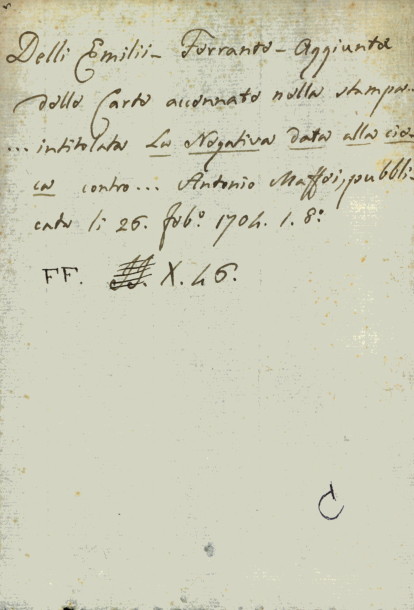 Delli Emilii - Ferrante - Aggiunta
delle Carte accennate nella stampa..
... intitolata La Negativa data alla cie-
ca contro... Antonio Maffei, pubbli-
cata li 26. feb.º 1704. 1. 8º
FF. X. 46.